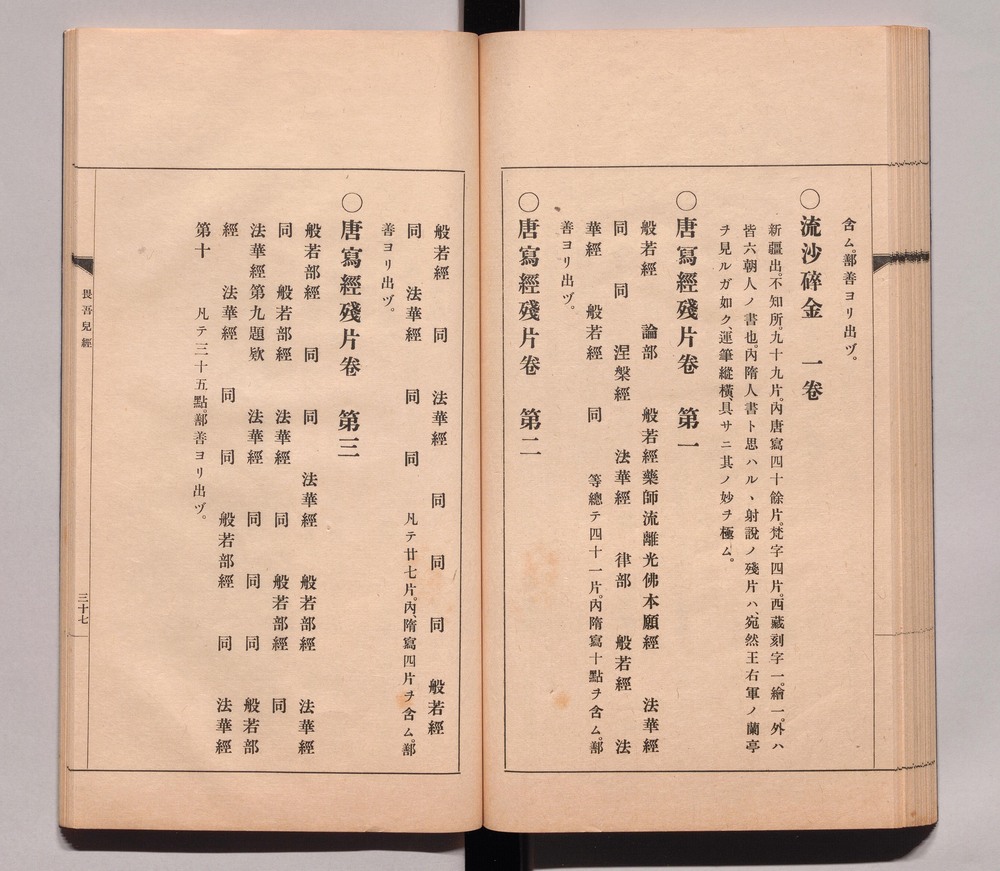 含ム。鄯善ヨリ出ヅ。
〇流沙碎金　一卷
新疆出。不知所。九十九片。內唐寫四十餘片。梵字四片。西藏刻字一。繪一。外ハ
皆六朝人ノ書也。內隋人書ト思ハルヽ射說ノ殘片ハ、宛然王右軍ノ蘭亭
ヲ見ルガ如ク、運筆縱橫、具サニ其ノ妙ヲ極ム。
〇唐寫經殘片卷　第一
般若經　論部　般若經藥師流離光佛本願經　法華經
同　同　涅槃經　法華經　律部　般若經　法
華經　般若經　同　等總テ四十一片。內隋寫十點ヲ含ム。鄯
善ヨリ出ヅ。
〇唐寫經殘片卷　第二
般若經　同　法華經　同　同　同　般若經
同　法華經　同　同　凡テ廿七片。內、隋寫四片ヲ含ム。鄯
善ヨリ出ヅ。
〇唐寫經殘片卷　第三
般若部經　同　同　法華經　般若部經　法華經
同　般若部經　法華經　同　般若部經　同
法華經第九題欵　法華經　同　同　般若部
經　法華經　同　同　般若部經　同　法華經
第十　凡テ三十五點。鄯善ヨリ出ヅ。
畏吾兒經
三十七